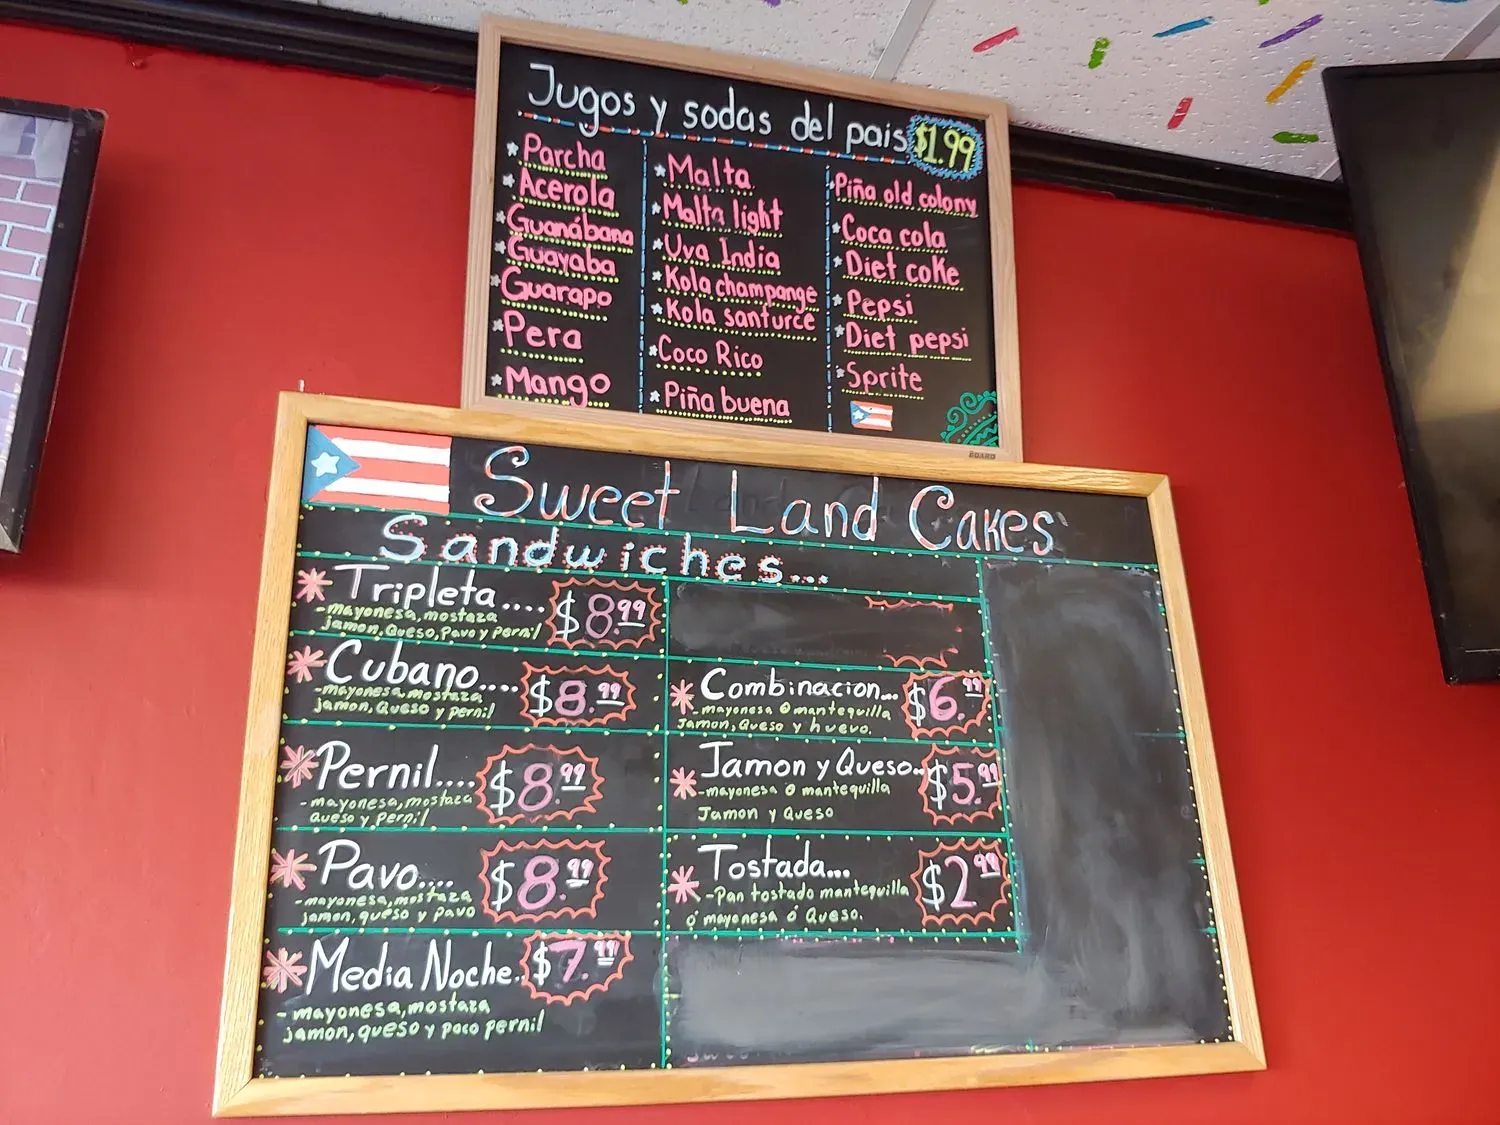 Jugos y sodas del pais $1.99
Parcha
Acerola
Guanábana
Guayaba
Guarapo
Pera
Mango
Malta
Malta light
Uva India
Kola champange
Kola santurce
Coco Rico
Piña buena
Piña old colony
Coca cola
Diet coke
Pepsi
Diet pepsi
Sprite
BOARD
Sweet Land Cakes
Sandwiches...
Tripleta.... $8.99
-mayonesa, mostaza
jamon, Queso, Pavo y Pernil
Cubano.... $8.99
-mayonesa, mostaza
jamon, Queso y pernil
Pernil.... $8.99
-mayonesa, mostaza
Queso y pernil
Pavo.... $8.99
-mayonesa, mostaza
jamon, queso y pavo
Media Noche.. $7.99
- mayonesa, mostaza
jamon, queso y poco pernil
Combinacion... $6.99
-mayonesa o mantequilla
Jamon, Queso y huevo.
Jamon y Queso.. $5.99
-mayonesa o mantequilla
Jamon y Queso
Tostada... $2.99
-Pan tostado mantequilla
ó mayonesa ó Queso.